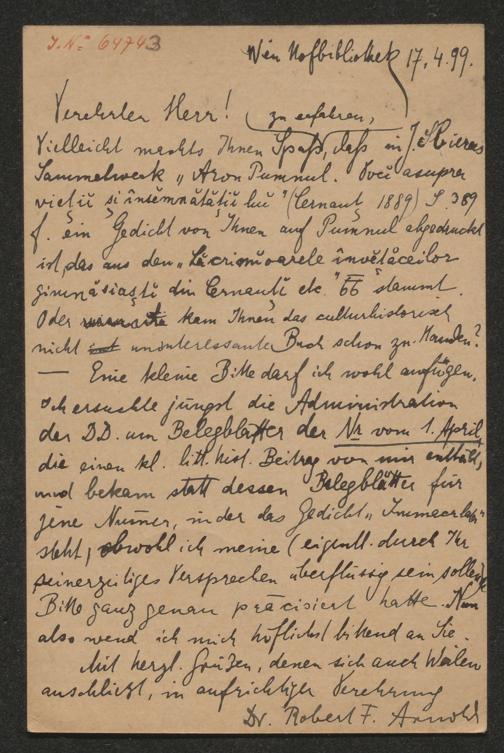 J. N. 64743
Wien Hofbibliothek 17.4.99.
Verehrter Herr! zu erfahren,
Vielleicht machts Ihnen Spaß, daß in J. Sbieras
Sammelwerk „Aron Pumnul. Voci asupra
vieții și însemnătății lui" (Cernauți 1889) S. 389
f. ein Gedicht von Ihnen auf Pumnul abgedruckt
ist, das aus den „Lăcrimioarele învățăceilor
gimnăsiaști din Cernauti etc." 66 stammt.
Oder kam Ihnen das culturhistorisch
nicht uninteressante Buch schon zu Handen?
— Eine kleine Bitte darf ich wohl anfügen.
Ich ersuchte jüngst die Administration
der D.D. um Belegblätter der Nr vom 1. April,
die einen kl. litt. hist. Beitrag von mir enthält,
und bekam statt dessen Belegblätter für
jene Numer, in der das Gedicht
steht, obwohl ich meine (eigentl. durch Ihr
seinerzeitiges Versprechen überflüssig sein sollende)
Bitte ganz genau präcisiert hatte. Nun
also wend ich mich höflichst bittend an Sie.
Mit herzl. Grüßen, denen sich auch Weilen
anschließt, in aufrichtiger Verehrung
Dr. Robert F. Arnold